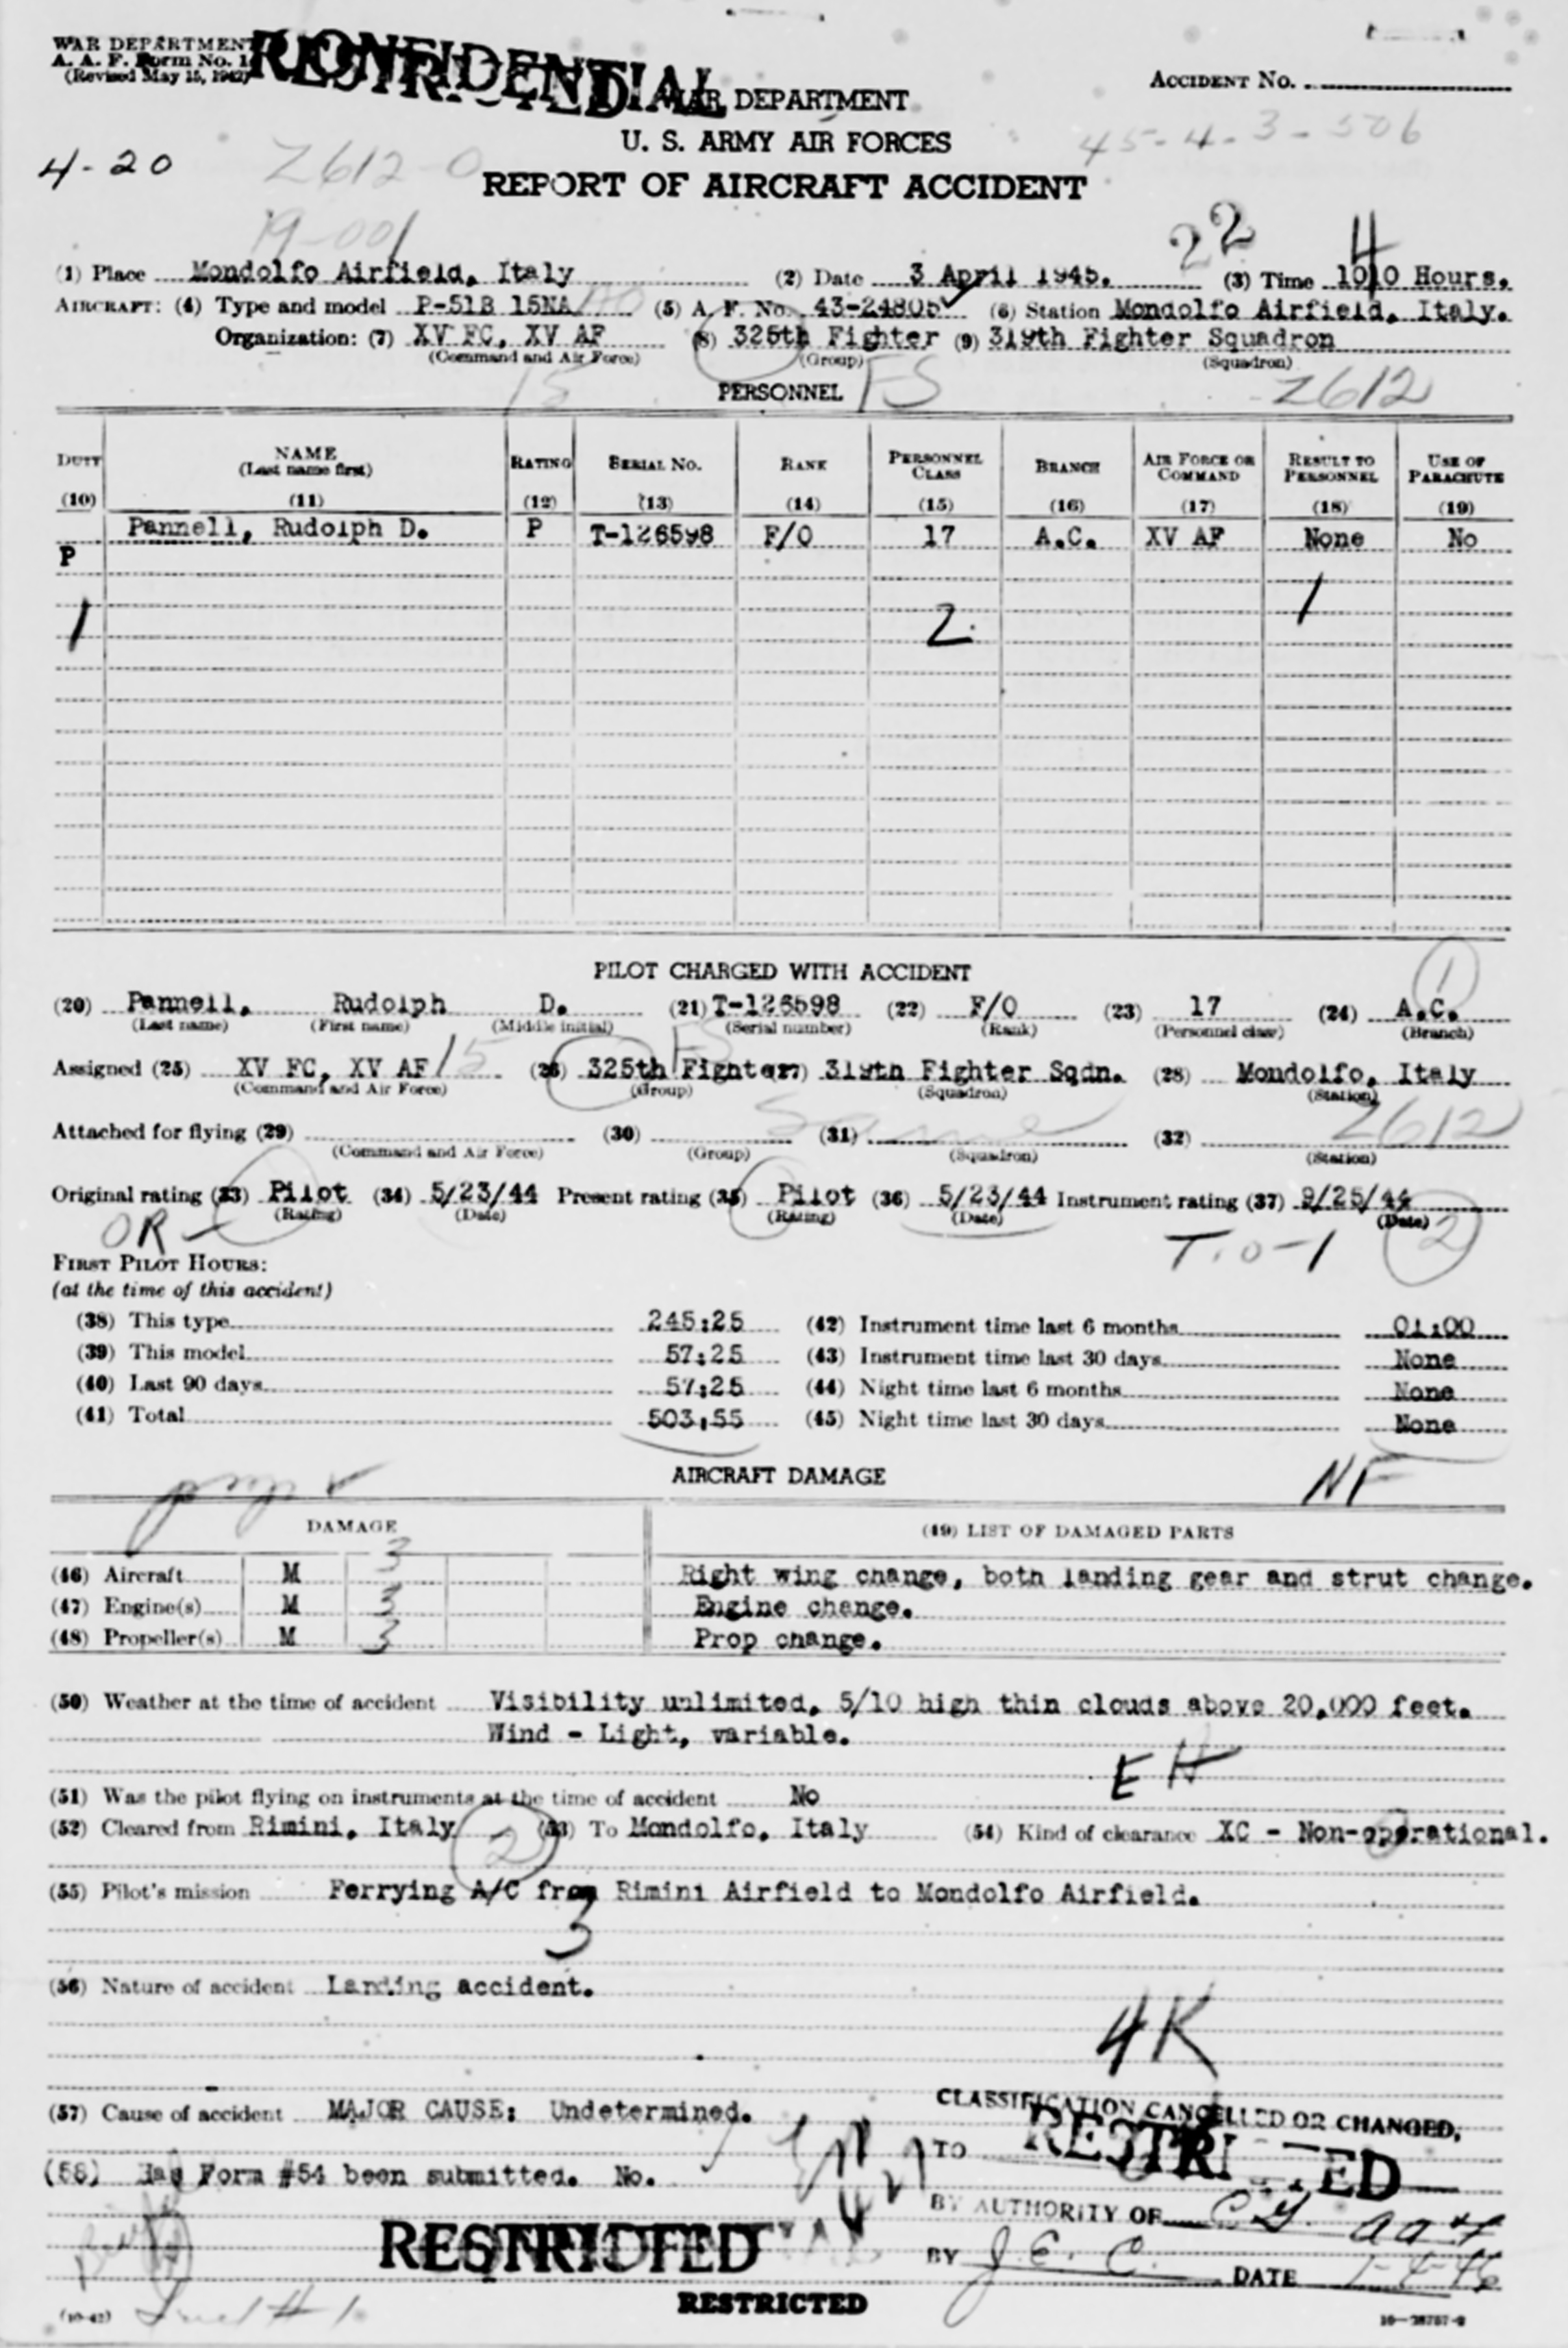 WAR DEPARTMENT
A. A. F. Form No. 14
(Revised May 15, 1942)
CONFIDENTIAL
RESTRICTED
ACCIDENT No.
WAR DEPARTMENT
U. S. ARMY AIR FORCES
45-4-3-506
4-20 Z612-0
REPORT OF AIRCRAFT ACCIDENT
19-001
22 4
(1) Place Mondolfo Airfield, Italy (2) Date 3 April 1945. (3) Time 1010 Hours.
AIRCRAFT: (4) Type and model P-51B 15NA (5) A. F. No. 43-24805 (6) Station Mondolfo Airfield, Italy.
Organization: (7) XV FC, XV AF (8) 325th Fighter (9) 319th Fighter Squadron
(Command and Air Force) (Group) (Squadron)
15 PERSONNEL FS Z612
DUTY NAME (Last name first) RATING SERIAL NO. RANK PERSONNEL CLASS BRANCH AIR FORCE OR COMMAND RESULT TO PERSONNEL USE OF PARACHUTE
(10) (11) (12) (13) (14) (15) (16) (17) (18) (19)
P Pannell, Rudolph D. P T-126598 F/O 17 A.C. XV AF None No
1 2 1
PILOT CHARGED WITH ACCIDENT
1
(20) Pannell, Rudolph D. (21) T-126598 (22) F/O (23) 17 (24) A.C.
(Last name) (First name) (Middle initial) (Serial number) (Rank) (Personnel class) (Branch)
Assigned (25) XV FC, XV AF 15 (26) 325th Fighter (27) 319th Fighter Sqdn. (28) Mondolfo, Italy
(Command and Air Force) (Group) (Squadron) (Station)
Attached for flying (29) (30) (31) Same (32) Z612
(Command and Air Force) (Group) (Squadron) (Station)
Original rating (33) Pilot (34) 5/23/44 Present rating (35) Pilot (36) 5/23/44 Instrument rating (37) 9/25/44
(Rating) (Date) (Rating) (Date) (Date)
OR T.O-1 2
FIRST PILOT HOURS:
(at the time of this accident)
(38) This type 245:25 (42) Instrument time last 6 months 01:00
(39) This model 57:25 (43) Instrument time last 30 days None
(40) Last 90 days 57:25 (44) Night time last 6 months None
(41) Total 503:55 (45) Night time last 30 days None
AIRCRAFT DAMAGE
NF
DAMAGE (49) LIST OF DAMAGED PARTS
(46) Aircraft M 3 Right wing change, both landing gear and strut change.
(47) Engine(s) M 3 Engine change.
(48) Propeller(s) M 3 Prop change.
(50) Weather at the time of accident Visibility unlimited, 5/10 high thin clouds above 20,000 feet.
Wind - Light, variable.
EH
(51) Was the pilot flying on instruments at the time of accident No
(52) Cleared from Rimini, Italy 2 (53) To Mondolfo, Italy (54) Kind of clearance XC - Non-operational.
(55) Pilot's mission Ferrying A/C from Rimini Airfield to Mondolfo Airfield.
3
(56) Nature of accident Landing accident.
4K
(57) Cause of accident MAJOR CAUSE: Undetermined.
CLASSIFICATION CANCELLED OR CHANGED,
TO RESTRICTED
(58) Has Form #54 been submitted. No.
BY AUTHORITY OF C.G. AAF
RESTRICTED
BY J. E. C. DATE
RESTRICTED
(10-42)